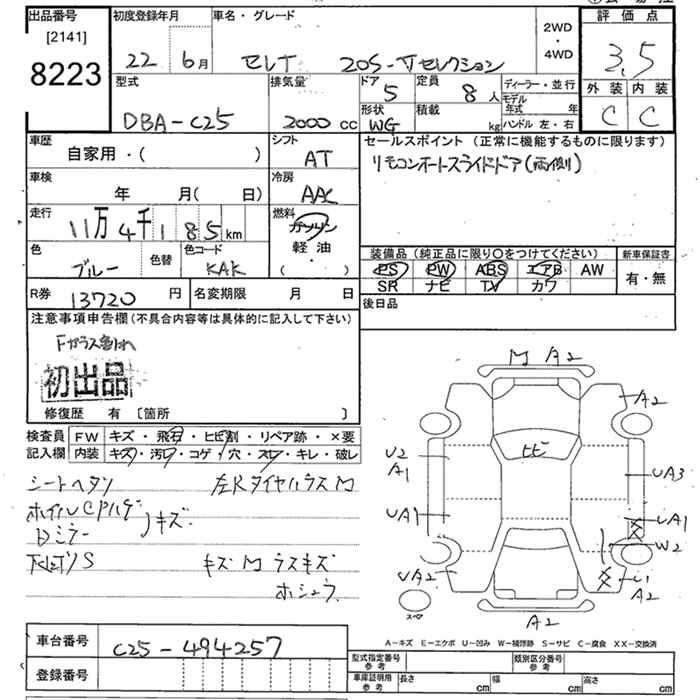 出品番号
[2141]
8223
初度登録年月
22 6月
車名・グレード
セレナ 20S-Vセレクション
2WD
・
4WD
評価点
3.5
型式
DBA-C25
排気量
2000 cc
ドア
5
定員
8人
形状
WG
積載
kg
ディーラー・並行
モデル年式 年
ハンドル 左・右
外装 内装
C C
車歴
自家用・( )
シフト
AT
セールスポイント (正常に機能するものに限ります)
リモコンオートスライドドア(両側)
車検
年 月( 日)
冷房
AAC
走行
11万4千185km
燃料
ガソリン
軽油
( )
色
ブルー
色替
色コード
KAK
装備品 (純正品に限り〇をつけてください)
PS PW ABS エアB AW
SR ナビ TV カワ
新車保証書
有・無
R券 13720 円
名変期限 月 日
後日品
注意事項申告欄 (不具合内容等は具体的に記入して下さい)
初出品
修復歴 有 [箇所 ]
検査員記入欄
FW キズ・飛石・ヒビ割・リペア跡・×要
内装 キズ・汚レ・コゲ・穴・スレ・キレ・破レ
シートヘタリ 左RタイヤハウスM
ホイルCPハゲ
Dミラー
)キズ
下廻リS キズM ラスキズ
ホシュウ
M A2
A2
ヒビ
U2
A1
UA3
UA1
UA1
W2
UA2
U1
A2
スペア
A2
A-キズ E-エクボ U-凹み W-補修跡 S-サビ C-腐食 XX-交換済
車台番号
C25-494257
登録番号
型式指定番号 参考
類別区分番号 参考
車庫証明用 参考
長さ cm
幅 cm
高さ cm